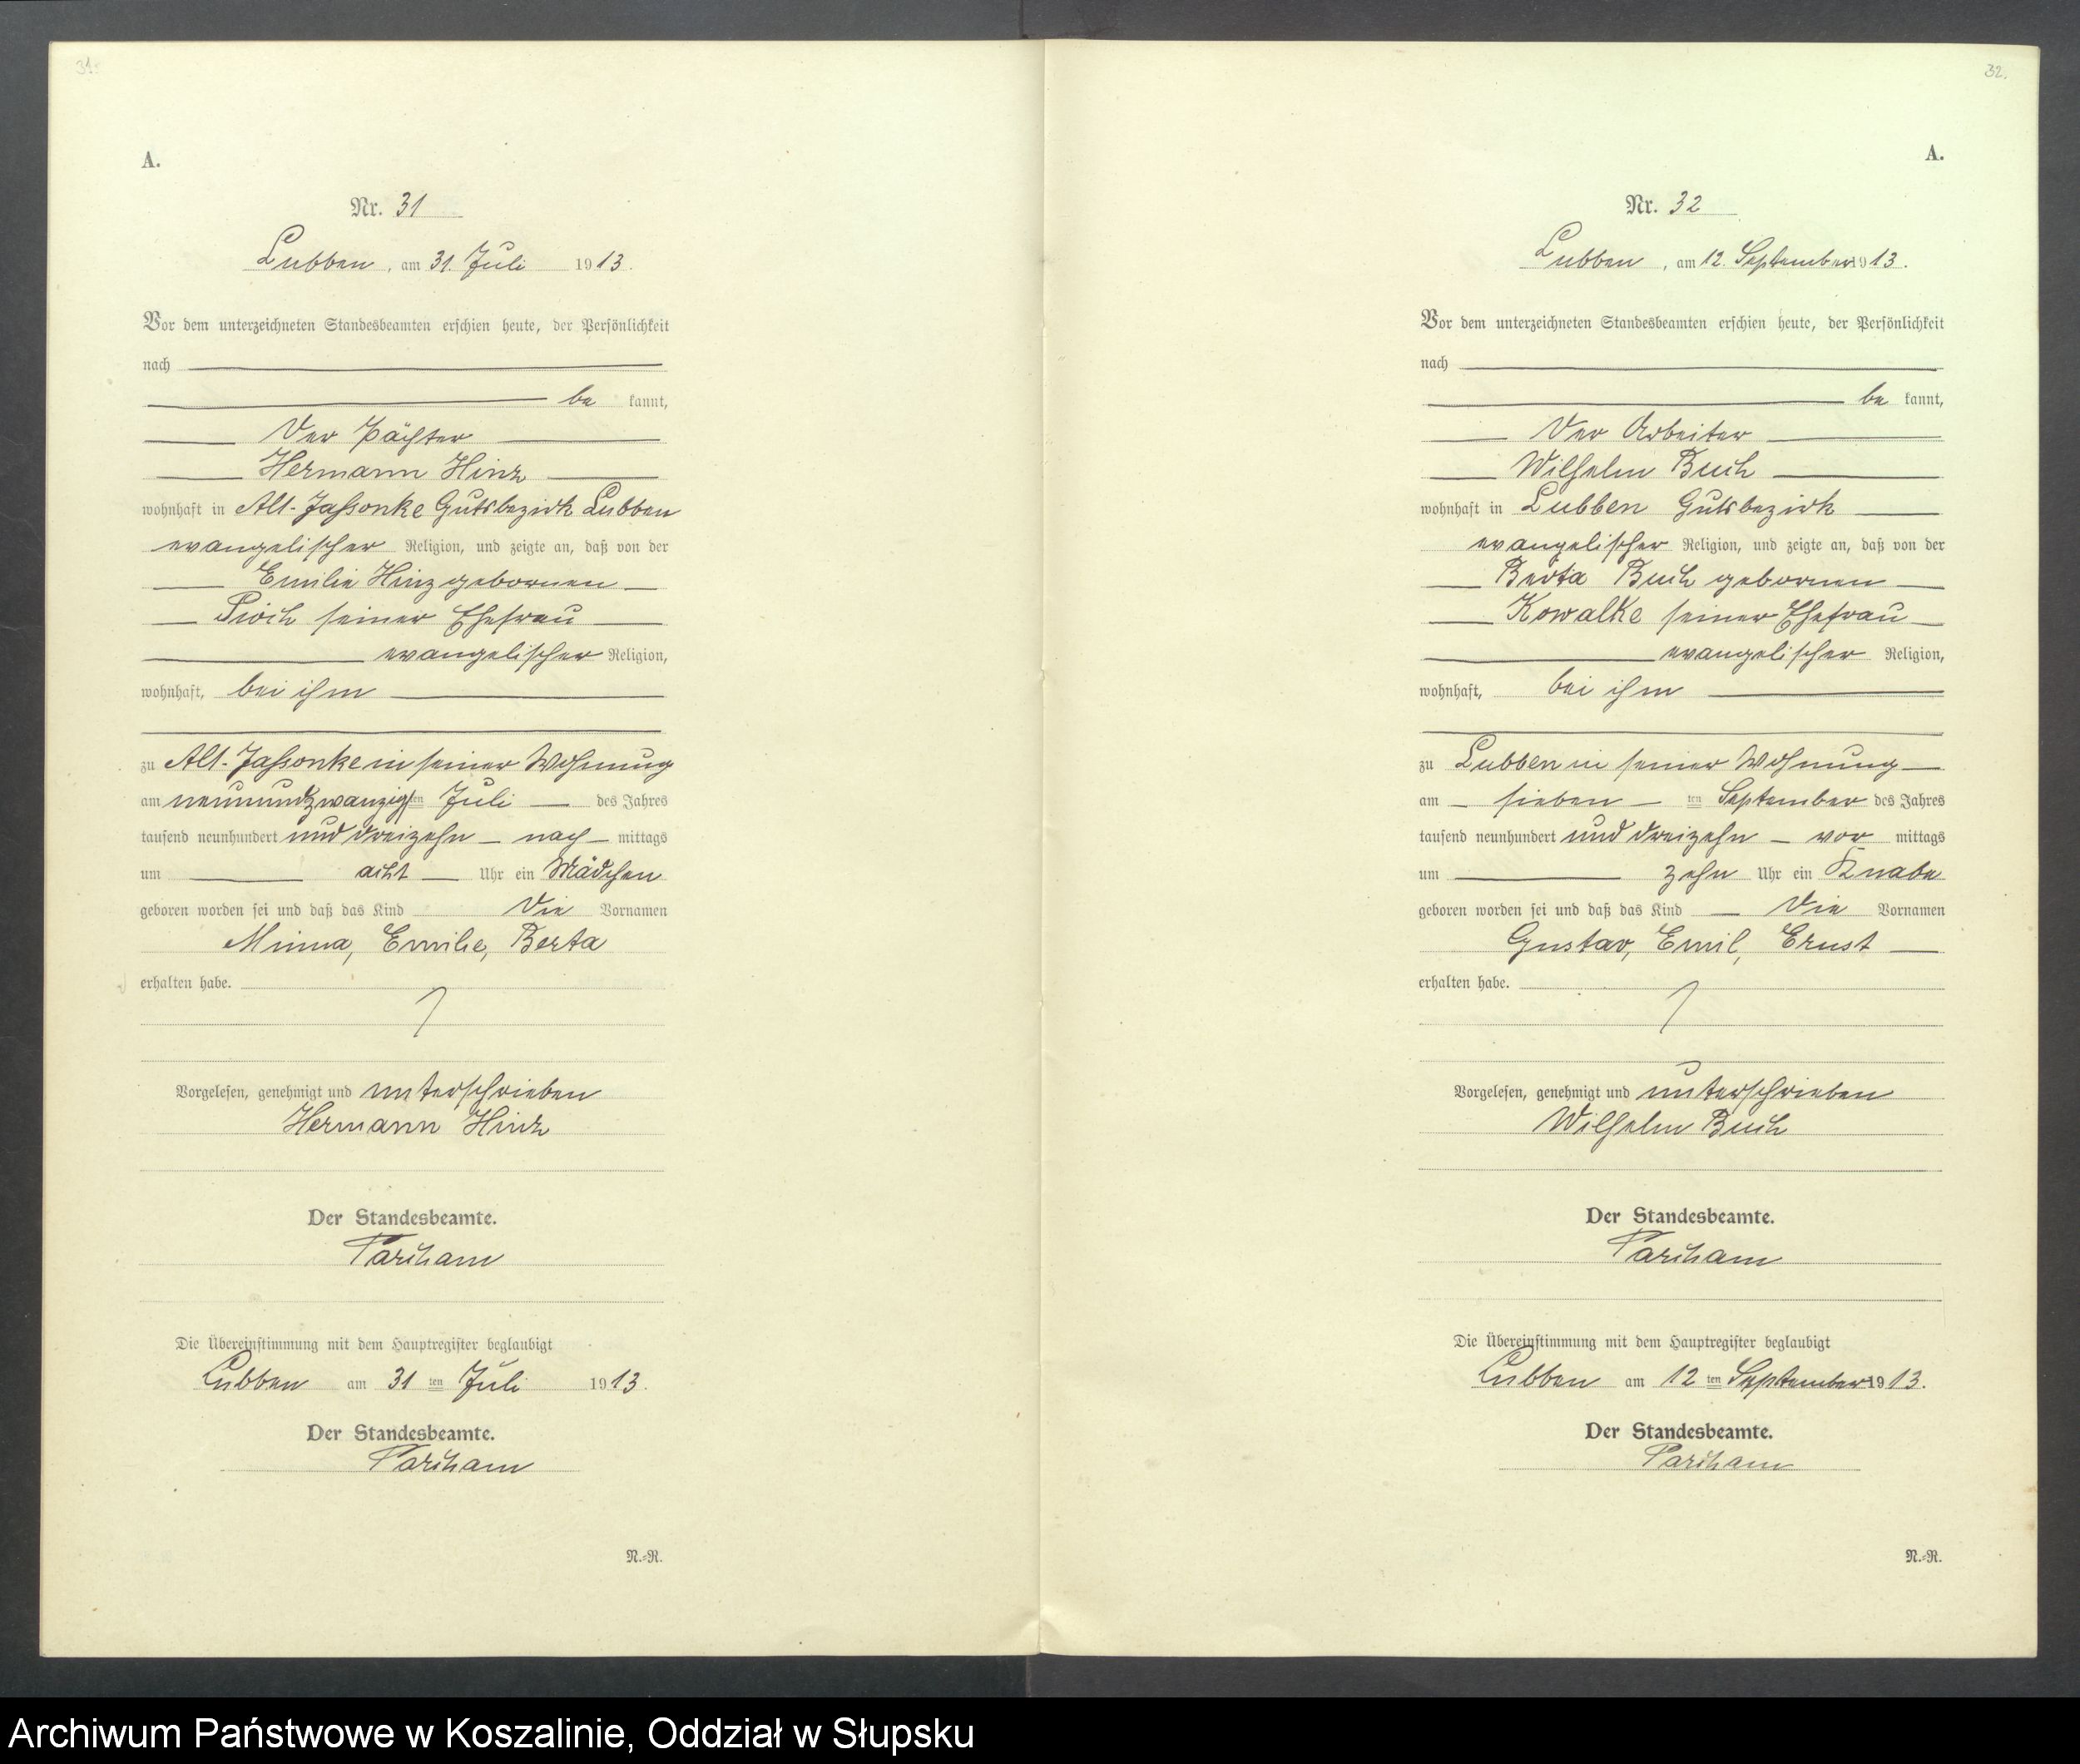 31.
A.
Nr. 31
Lubben, am 31. Juli 1913.
Vor dem unterzeichneten Standesbeamten erschien heute, der Persönlichkeit
nach
be kannt,
Der Pächter
Hermann Hinz
wohnhaft in Alt-Jassonke Gutsbezirk Lubben
evangelischer Religion, und zeigte an, daß von der
Emilie Hinz geborenen
Pioch seiner Ehefrau
evangelischer Religion,
wohnhaft, bei ihm
zu Alt-Jassonke in seiner Wohnung
am neunundzwanzigsten Juli des Jahres
tausend neunhundert und dreizehn nach mittags
um acht Uhr ein Mädchen
geboren worden sei und daß das Kind die Vornamen
Minna, Emilie, Berta
erhalten habe.
Vorgelesen, genehmigt und unterschrieben
Hermann Hinz
Der Standesbeamte.
Die Übereinstimmung mit dem Hauptregister beglaubigt
Lubben am 31 ten Juli 1913.
Der Standesbeamte.
N.=R.
32.
A.
Nr. 32
Lubben, am 12. September 1913.
Vor dem unterzeichneten Standesbeamten erschien heute, der Persönlichkeit
nach
be kannt,
Der Arbeiter
Wilhelm Buch
wohnhaft in Lubben Gutsbezirk
evangelischer Religion, und zeigte an, daß von der
Berta Buch geborenen
Kowalke seiner Ehefrau
evangelischer Religion,
wohnhaft, bei ihm
zu Lubben in seiner Wohnung
am sieben ten September des Jahres
tausend neunhundert und dreizehn vor mittags
um zehn Uhr ein Knabe
geboren worden sei und daß das Kind die Vornamen
Gustav, Emil, Ernst
erhalten habe.
Vorgelesen, genehmigt und unterschrieben
Wilhelm Buch
Der Standesbeamte.
Die Übereinstimmung mit dem Hauptregister beglaubigt
Lubben am 12 ten September 1913.
Der Standesbeamte.
N.=R.
Archiwum Państwowe w Koszalinie, Oddział w Słupsku